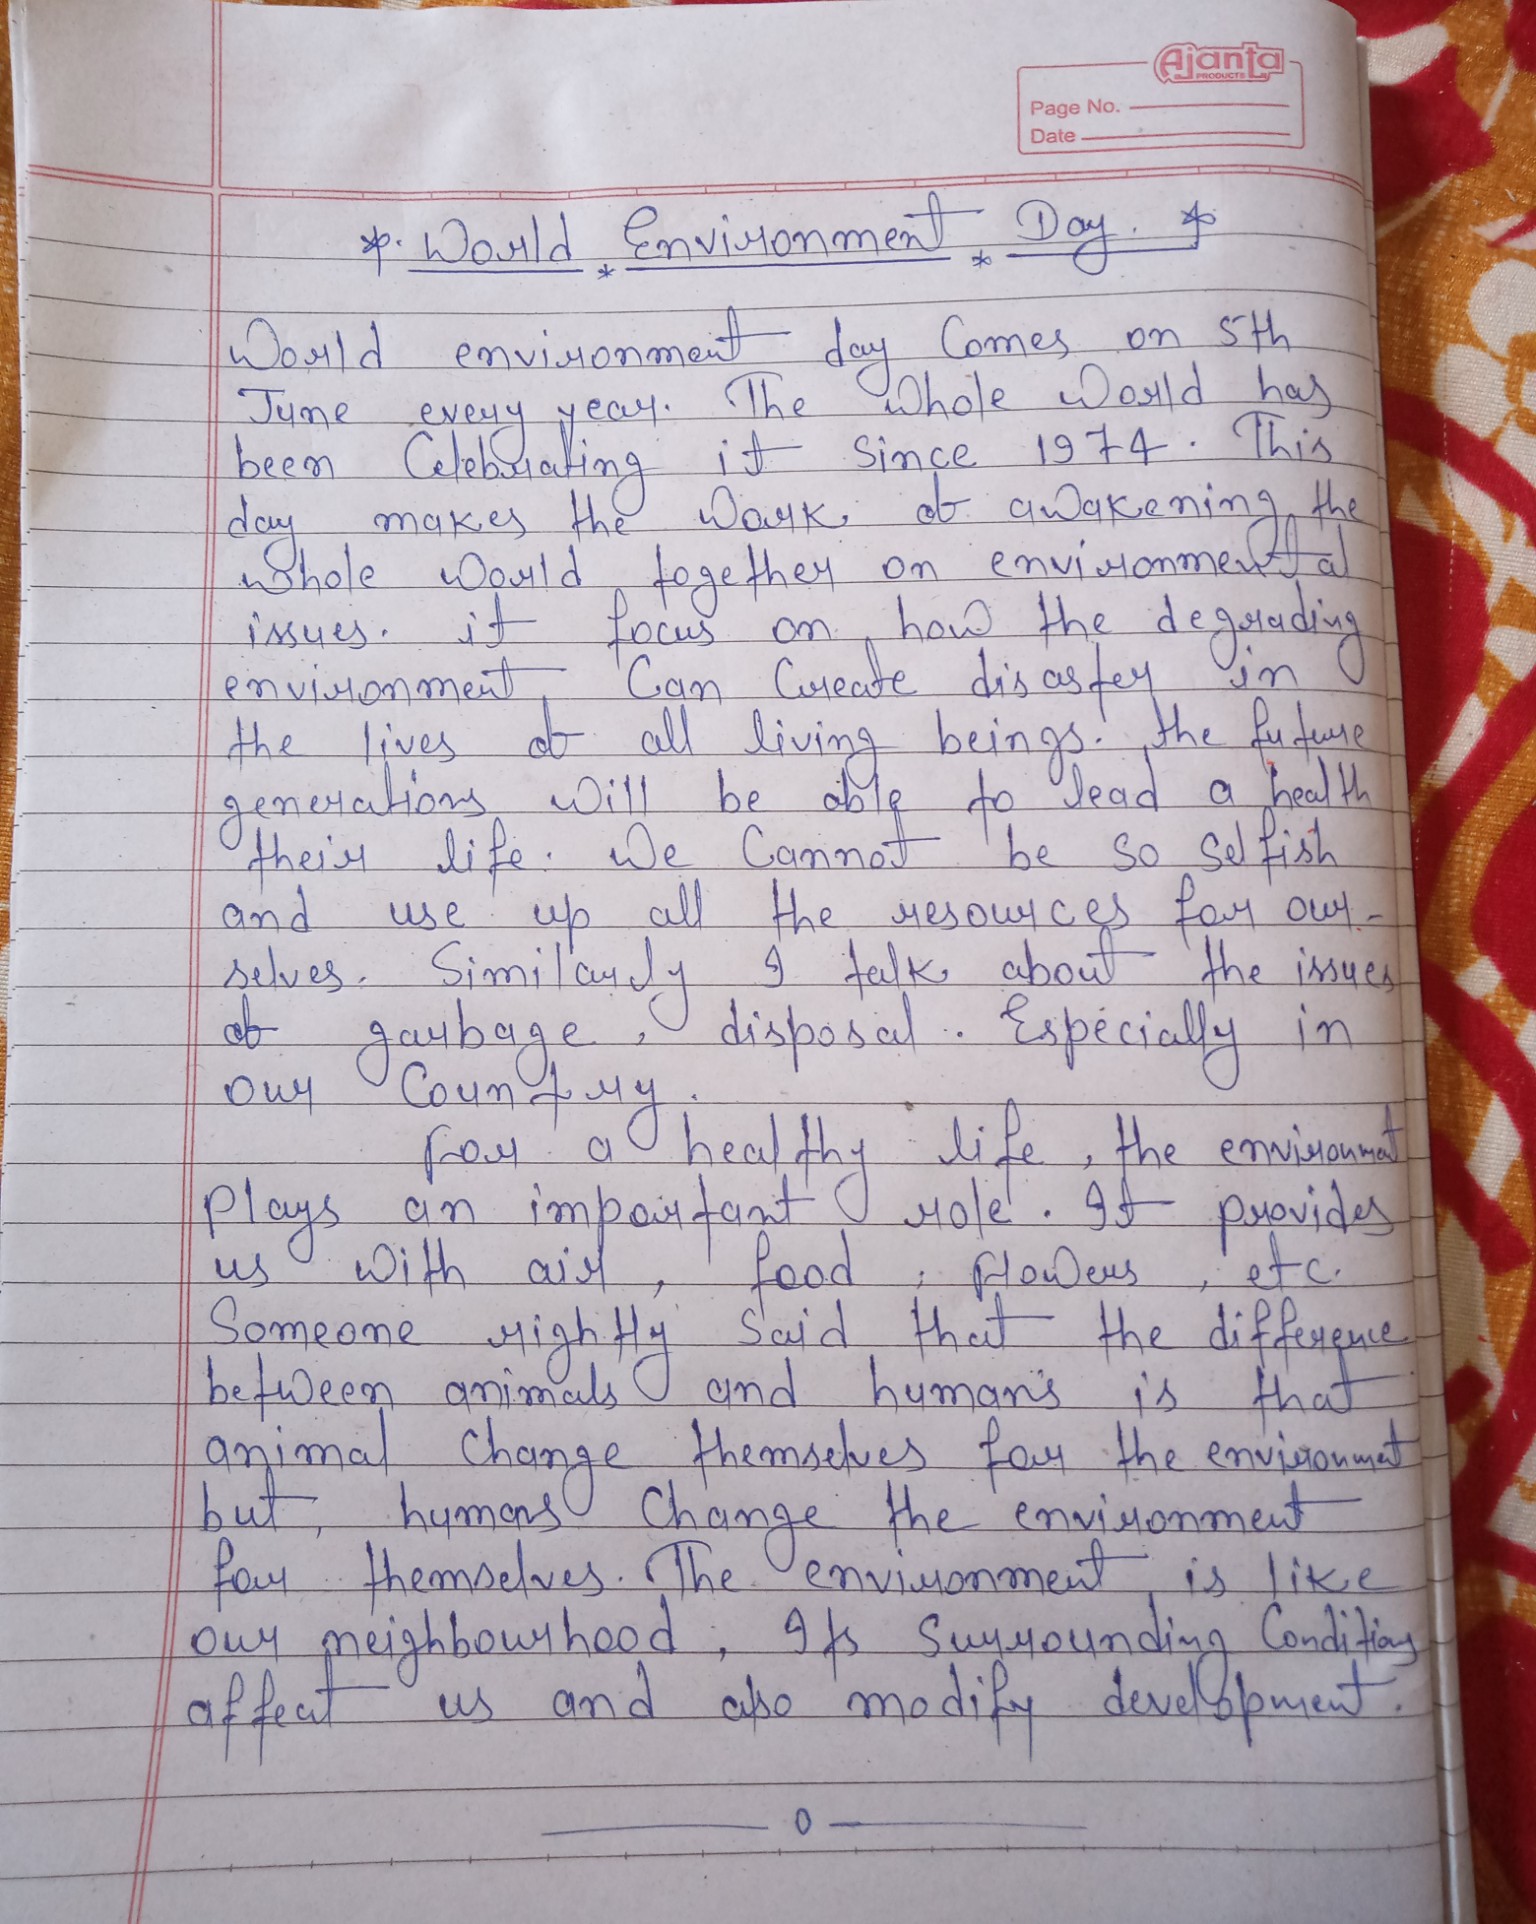 Ajanta
PRODUCTS
Page No.
Date
* World * Environment * Day. *
World environment day Comes on 5th
June every year. The whole World has
been Celebrating it Since 1974. This
day makes the Work of awakening the
whole World together on environmental
issues. it focus on how the degrading
environment Can Create disaster in
the lives of all living beings. the future
generations will be able to lead a health
their life. We Cannot be so selfish
and use up all the resources for our-
selves. Similarly I talk about the issues
of garbage, disposal. Especially in
our Country.
For a healthy life, the environmet
Plays an important role. It provides
us with air, food, flowers, etc.
Someone rightly Said that the difference
between animals and human's is that
animal Change themselves for the environmet
but, humans Change the environment
for themselves. The environment is like
our neighbourhood, Its Surrounding Conditions
affect us and also modify development.
— 0 —